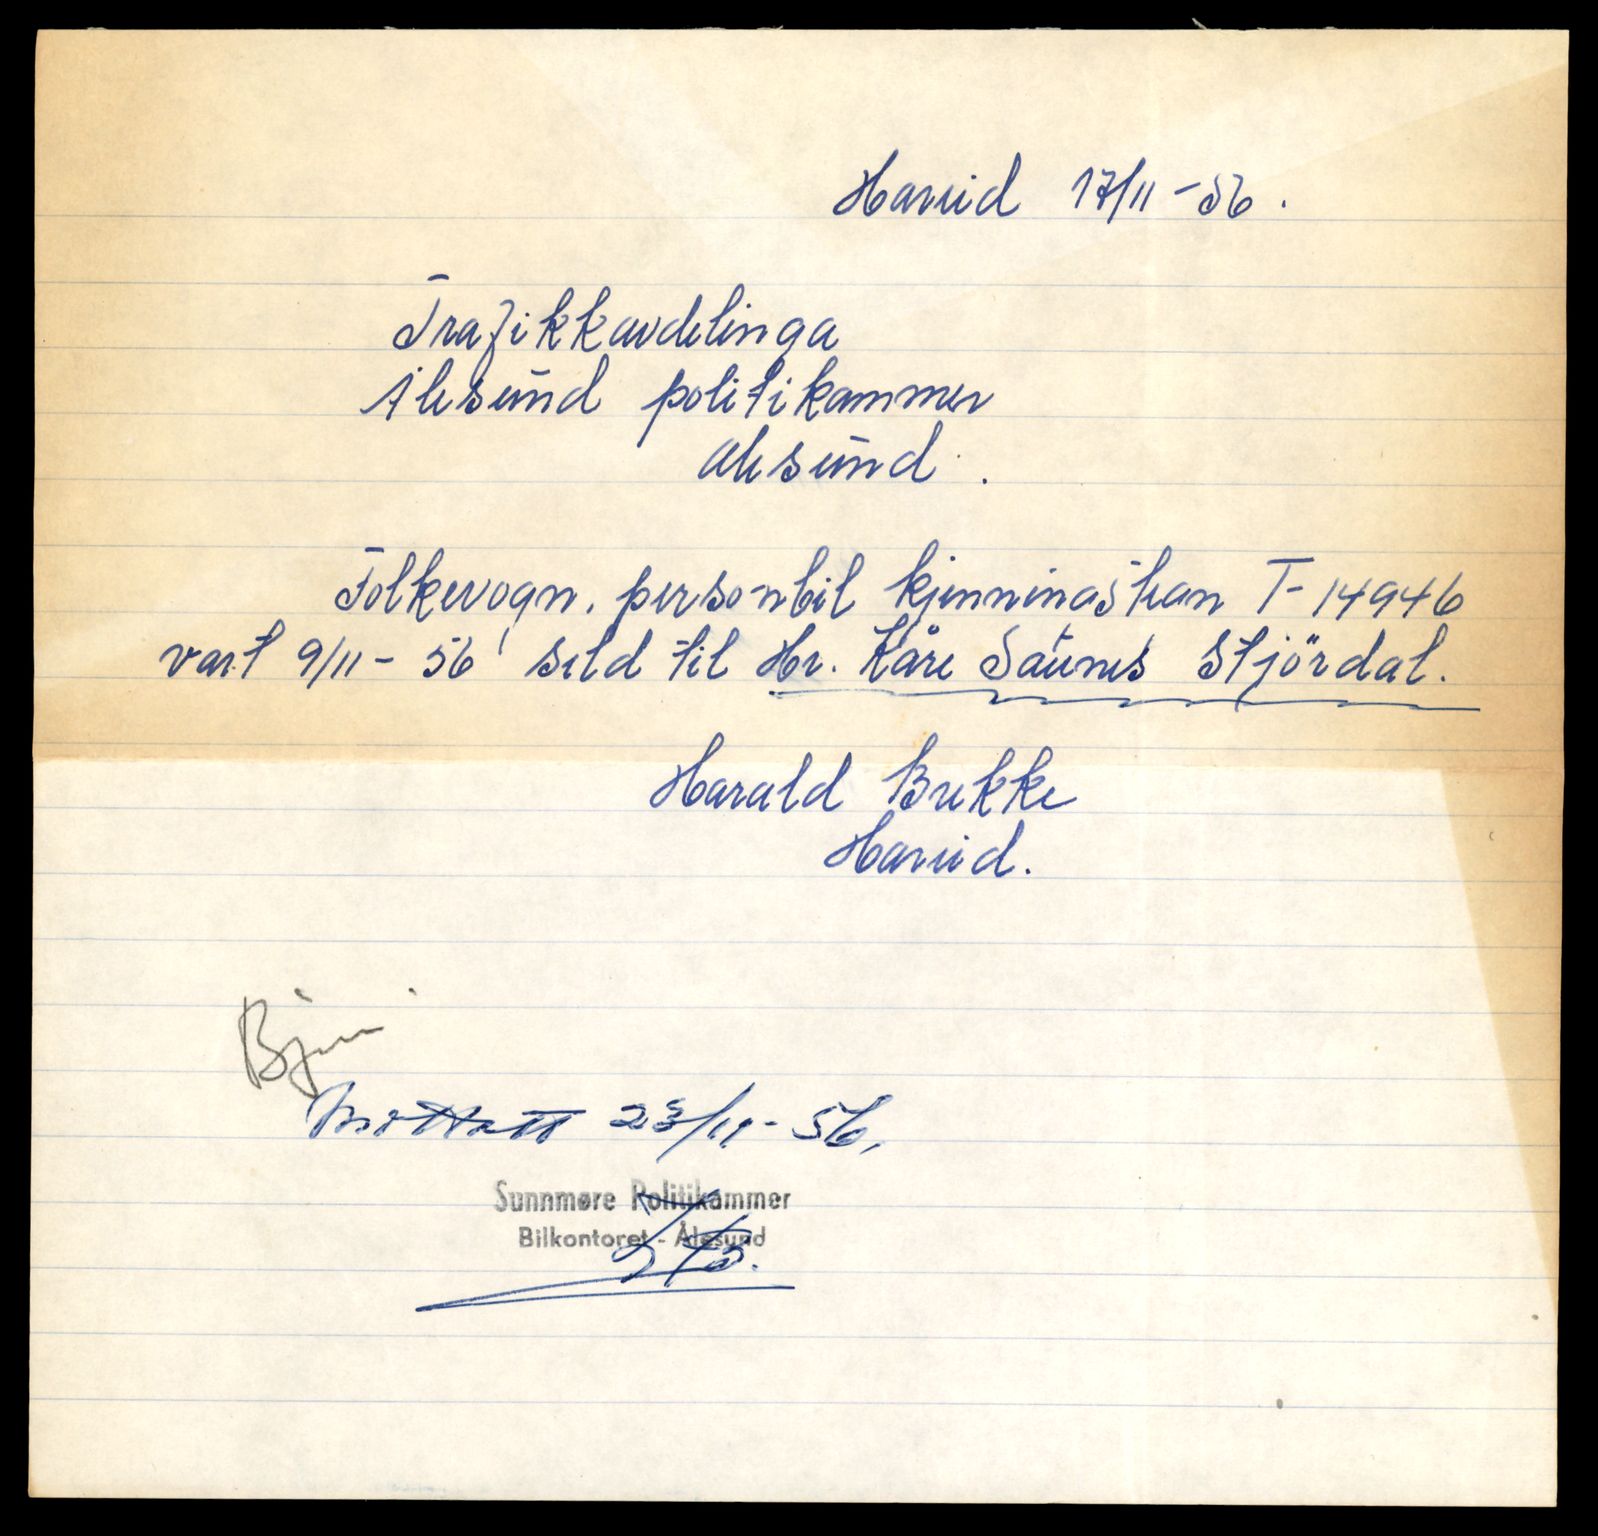 Hareid 17/11-56.
Trafikkavdelinga
Ålesund politikammer
Ålesund.
Folkevogn, personbil kjenningstegn T-14946
vart 9/11-56 seld til Hr. Kåre Saunes Stjördal.
Harald Brekke
Hareid.
Mottatt 23/11-56.
Sunnmøre Politikammer
Bilkontoret - Ålesund